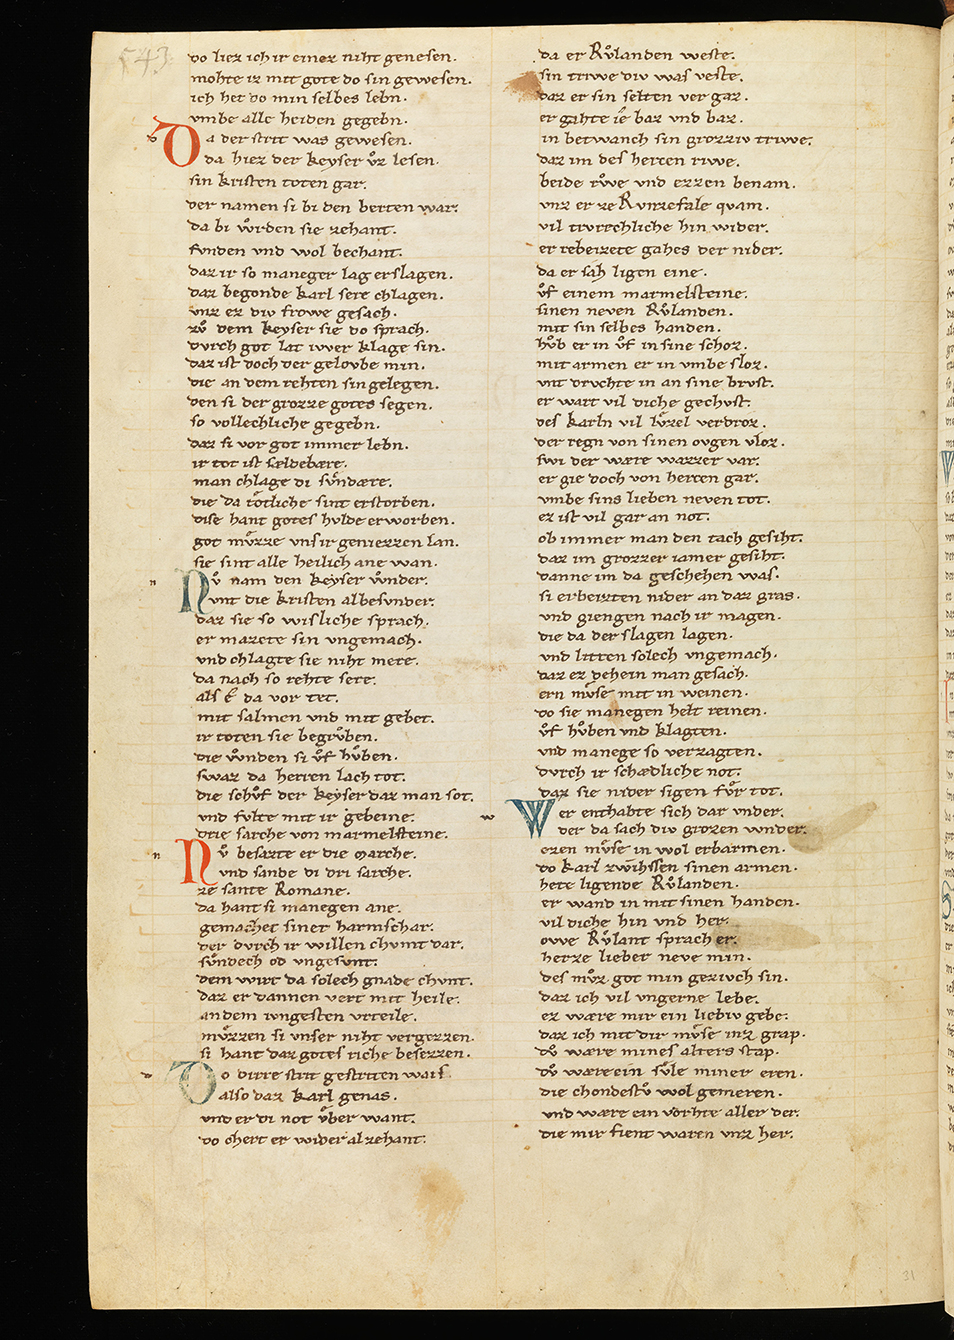 543
do liez ich ir einez niht genesen.
mohte iz mit gote do sin gewesen.
ich het do min selbes lebn.
vmbe alle heiden gegebn.
Da der strit was gewesen.
da hiez der keyser vͦz lesen.
sin kristen toten gar.
der namen si bi den berten war.
da bi wͦrden sie zehant.
fvnden vnd wol bechant.
daz ir so maneger lag erslagen.
daz begonde karl sere chlagen.
vnz ez div frowe gesach.
zvͦ dem keyser sie do sprach.
dvrch got lat ivver klage sin.
daz ist doch der gelovbe min.
die an dem rehten sin gelegen.
den si der grozze gotes segen.
so vollechliche gegebn.
daz si vor got immer lebn.
ir tot ist sældebære.
man chlage di svͤndære.
die da toͤtliche sint erstorben.
dise hant gotes hvlde erworben.
got mvͤzze vns ir geniezzen lan.
sie sint alle heilich ane wan.
Nvͦ nam den keyser wͦnder.
vnt die kristen albesvnder.
daz sie so wisliche sprach.
er mazete sin vngemach.
vnd chlagte sie niht mere.
da nach so rehte sere.
als é da vor tet.
mit salmen vnd mit gebet.
ir toten sie begrvͦben.
die wͦnden si vͦf hvͦben.
swaz da herren lach tot.
die schvͦf der keyser daz man sot.
vnd fvlte mit ir gebeine.
drie sarche von marmelsteine.
Nvͦ besazte er die marche.
vnd sande di dri sarche.
ze sante Romane.
da hant si manegen ane.
gemachet siner harmschar.
der dvrch ir willen chvmt dar.
svͤndech od vngesvnt.
dem wirt da solech gnade chvnt.
daz er dannen vert mit heile.
an dem ivngesten vrteile.
mvͤzzen si vnser niht vergezzen.
si hant daz gotes riche besezzen.
Do dirre strit gestriten wais
also daz karl genas.
vnd er di not vͤber want.
do chert er wider al zehant.
da er Rvͦlanden weste.
sin triwe div was veste.
daz er sin selten vergaz.
er gahte ie baz vnd baz.
in betwanch sin grozziv triwe.
daz im des herzen riwe.
beide rvͦwe vnd ezzen benam.
vnz er ze Rvnzefale quam.
vil trvrechliche hin wider.
er rebeizete gahes der nider.
da er sah ligen eine.
vͦf einem marmelsteine.
sinen neven Rvͦlanden.
mit sin selbes handen.
hvͦb er in vͦf in sine schoz.
mit armen er in vmbe sloz.
vnt drvchte in an sine brvst.
er wart vil diche gechvst.
des karln vil lvͤzel verdroz.
der regn von sinen ovgen vloz.
swi der wære wazzer var.
er gie doch von herzen gar.
vmbe sins lieben neven tot.
ez ist vil gar an not.
ob immer man den tach gesiht.
daz im grozzer iamer gesiht.
danne im da geschehen was.
si erbeizten nider an daz gras.
vnd giengen nach ir magen.
die da der slagen lagen.
vnd litten solech vngemach.
daz ez dehein man gesach.
ern mvͤse mit in weinen.
do sie manegen helt reinen.
vͦf hvͦben vnd klagten.
vnd manege so verzagten.
dvrch ir schædliche not.
daz sie nider sigen fvͤr tot.
Wer enthabte sich dar vnder.
der da sach div grozen wnder.
ezen mvͤse in wol erbarmen.
do karl zwihssen sinen armen.
hete ligende Rvͦlanden.
er wand in mit sinen handen.
vil diche hin vnd her.
owe Rvͦlant sprach er.
herze lieber neve min.
des mvͤz got min gezivch sin.
daz ich vil vngerne lebe.
ez wære mir ein liebiv gebe.
daz ich mit dir mvͤse inz grap.
dvͦ wære mines alters stap.
dvͦ wære ein svͦle miner eren.
die chondestvͦ wol gemeren.
vnd wære ein vorhte aller der.
die mir fient waren vnz her.
31